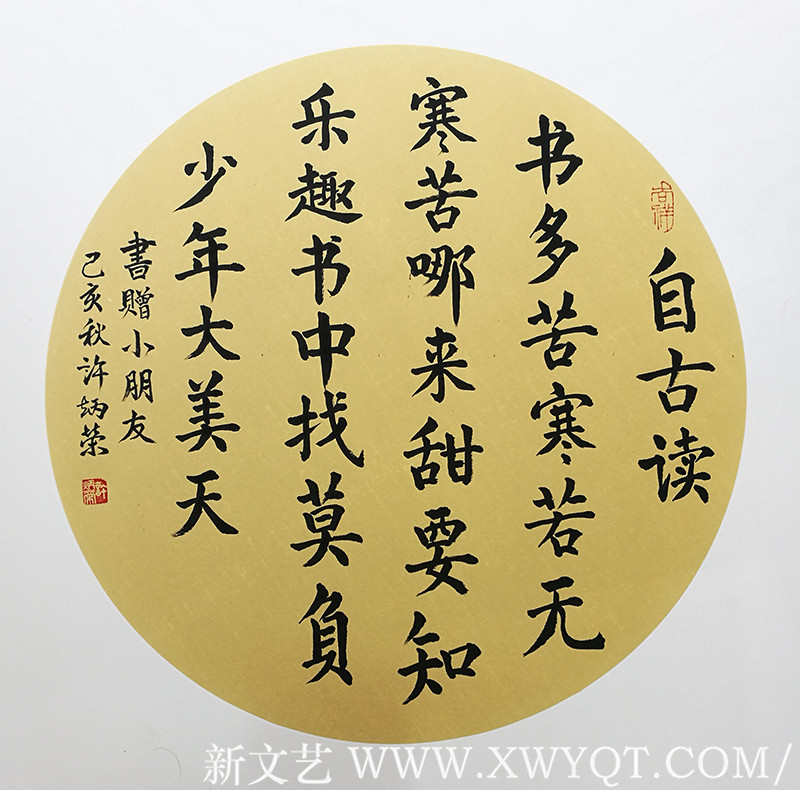 自古读
书多苦寒若无
寒苦哪来甜要知
乐趣书中找莫负
少年大美天
書贈小朋友
己亥秋许炳荣
新文艺 WWW.XWYQT.COM/